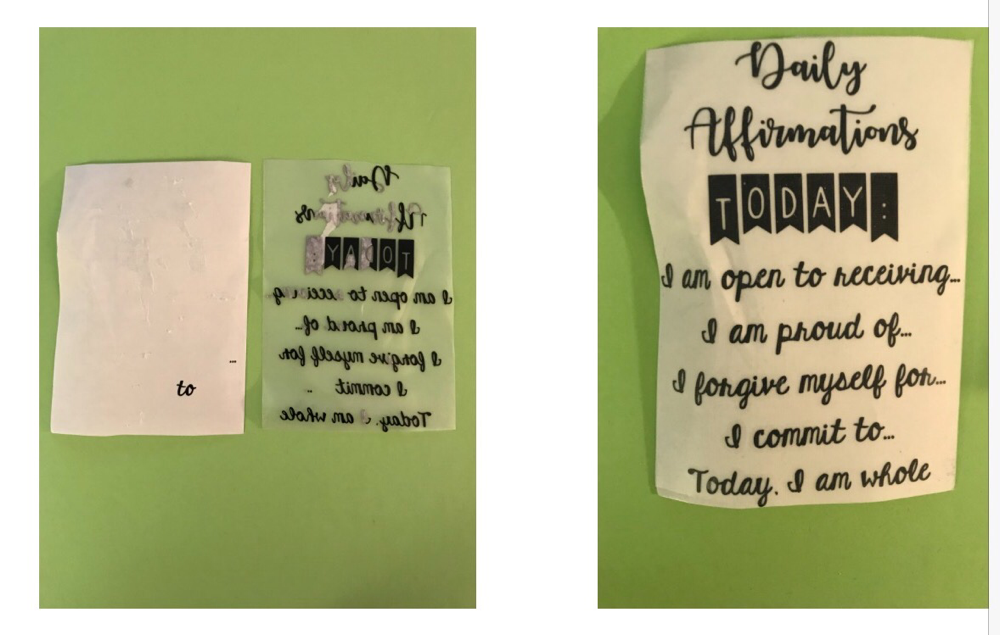 ...
to
Daily
Affirmations
TODAY:
I am open to receiing
I am proud of...
I forgive myself for
I commit ..
Today, I am whole
Daily
Affirmations
TODAY:
I am open to receiving...
I am proud of...
I forgive myself for...
I commit to...
Today. I am whole